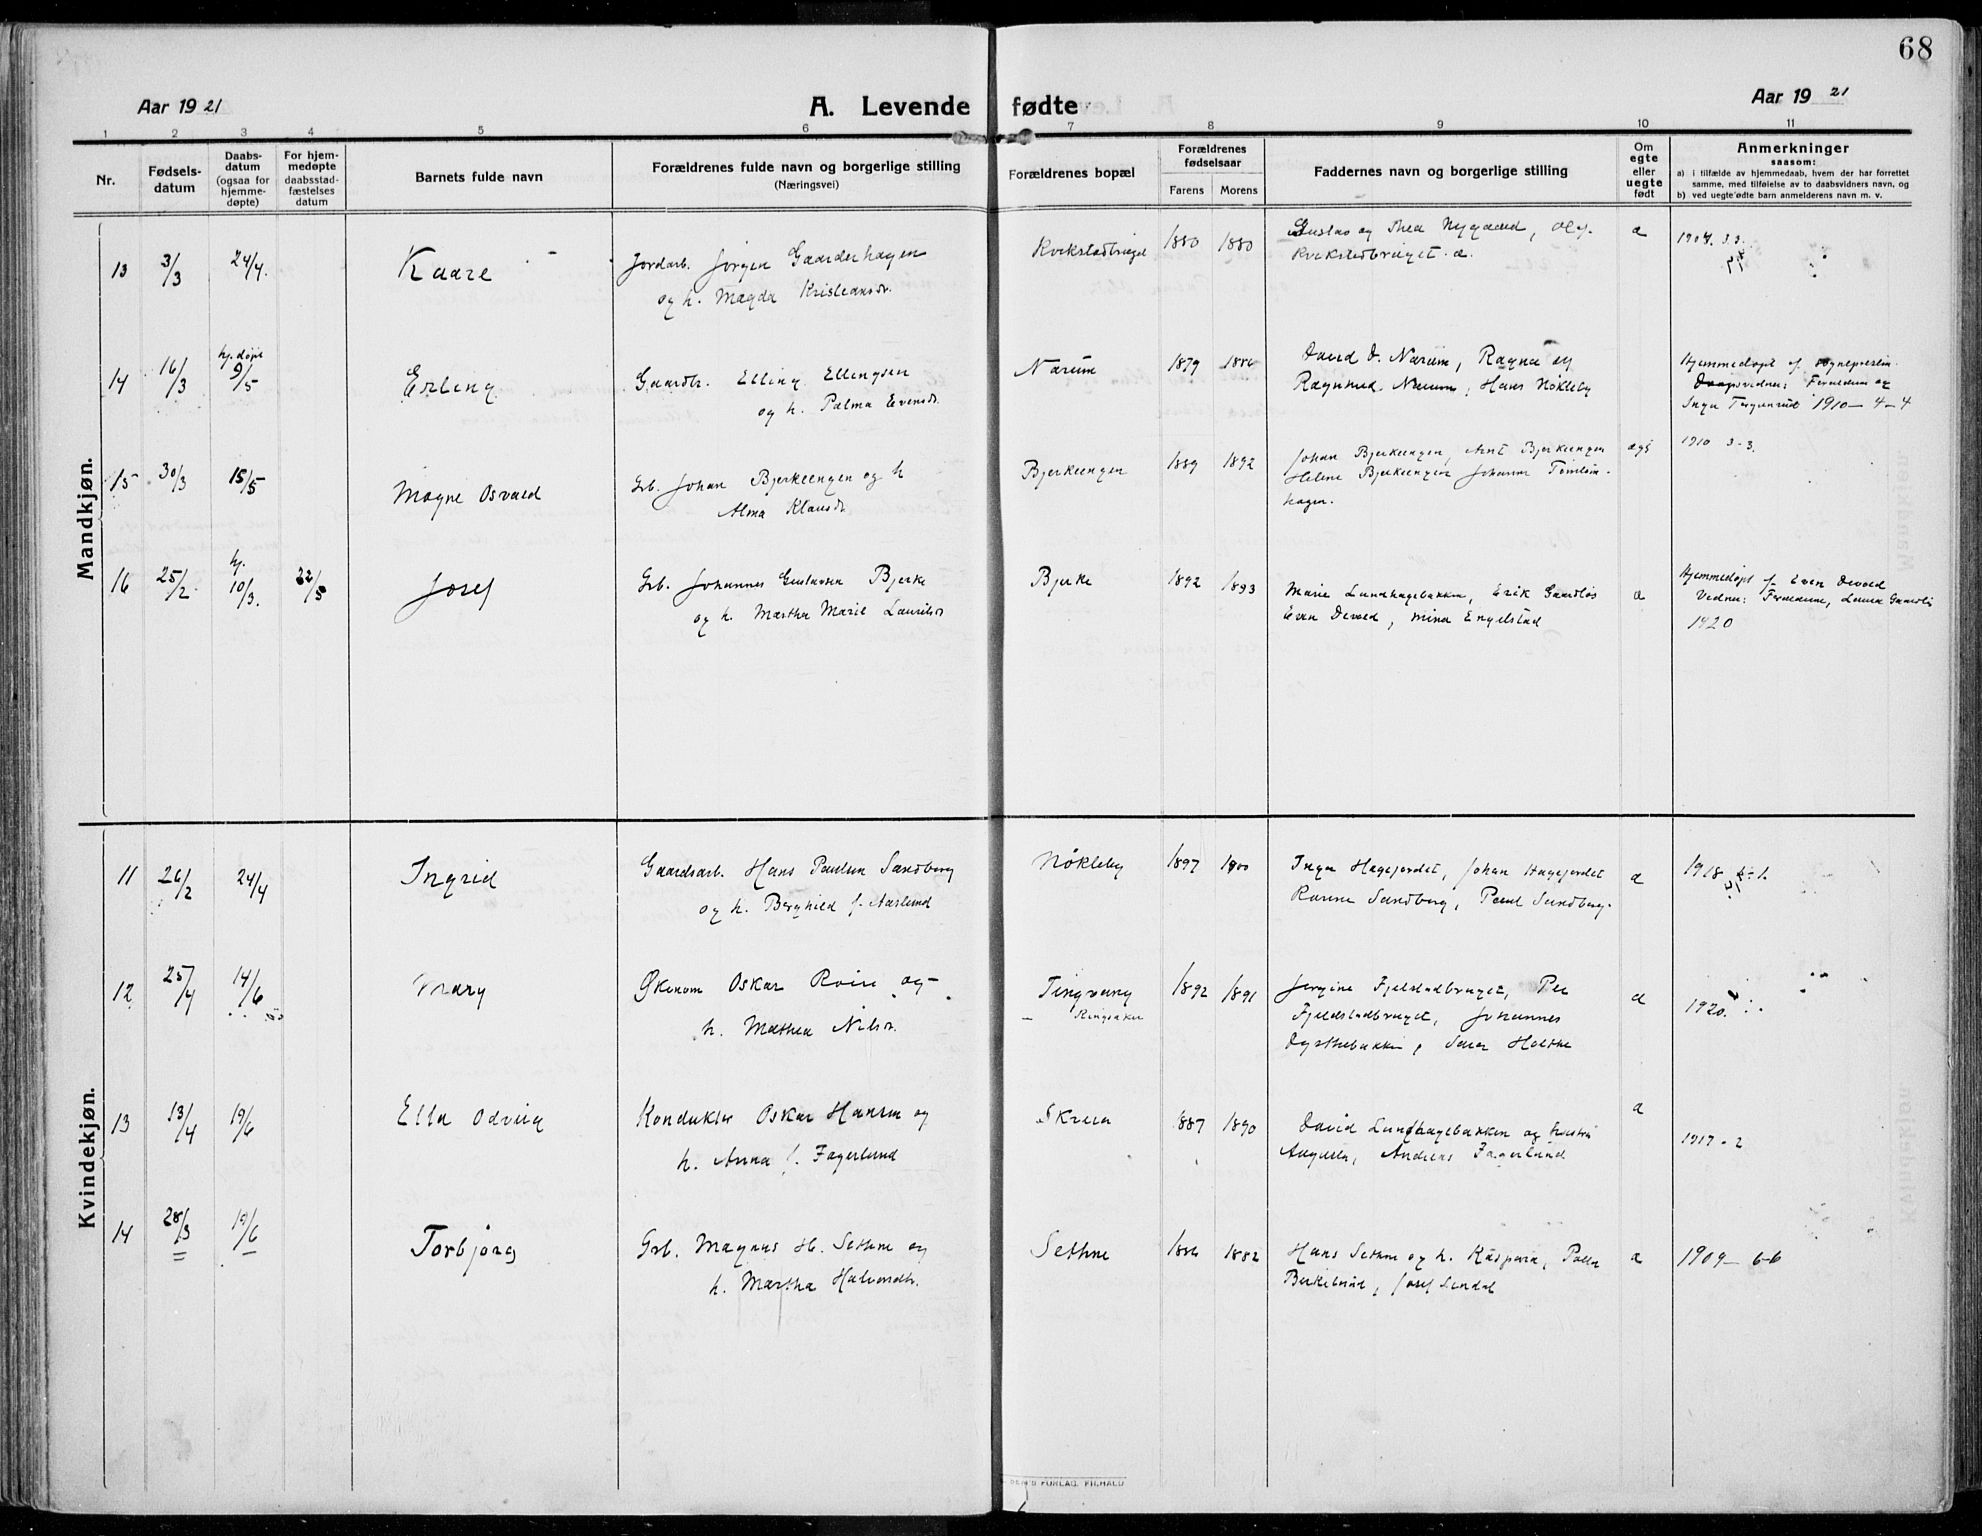 68
Aar 1921
A. Levende fødte
Aar 1921
1 2 3 4 5 6 7 8 9 10 11
Nr.
Fødsels-
datum
Daabs-
datum
(ogsaa for
hjemme-
døpte)
For hjem-
medøpte
daabsstad-
fæstelses
datum
Barnets fulde navn
Forældrenes fulde navn og borgerlige stilling
(Næringsvei)
Forældrenes bopæl
Forældrenes
fødselsaar
Farens Morens
Faddernes navn og borgerlige stilling
Om
egte
eller
uegte
født
Anmerkninger
saasom:
a) i tilfælde av hjemmedaab, hvem der har forrettet
samme, med tilføielse av to daabsvidners navn, og
b) ved uegte fødte barn anmelderens navn m. v.
Mandkjøn.
13 3/3 24/4. Kaare
Jordarb. Jørgen Gaarderhagen
og h. Magda Kristiansdr.
1880 1880
Gustav og Thea Nygaard, Olaf
æ
14 16/3 hj. døpt 9/5 Erling
Gaardbr. Elling Ellingsen
og h. Palma Evensdr.
Narum 1879 1886
David D. Narum, Ragna og
Ragnhild Narum, Hans Nökleby
Hjemmedöpt af Sognepresten.
Daapsvidner: Foreldrene og
1910 – 4 – 4
15 30/3 15/5 Magne Osvald
Grb. Johan Bjerkeengen og h
Alma Klausdr.
Bjerkeengen 1889 1892
Johan Bjerkeengen, Arnt Bjerkeengen
Helene Bjerkeengen Johanne Tømlin-
hagen.
1910 3-3.
16 25/2 hj. 10/3. 22/5 Josef
Grb. Johannes Gustavsen Bjerke
og h. Martha Marie Lauritsdr
Bjerke 1892 1893
Marie Lundhagebakken, Erik Gaardløs
Even Devold, Mina Engelstad
æ
Hjemmedöpt af Even Devold
Vidner: Foreldrene, Laura Gaardløs
1920
Kvindekjøn.
11 26/2 24/4 Ingrid
Gaardsarb. Hans Paulsen Sandberg
og h. Berghild f. Aaslund
Nökleby 1897 1900
Inga Hagejordet, Johan Hagejordet
Karine Sandberg, Paul Sandberg.
æ
1918
12 25/4 14/6 Mary
Økonom Oskar Roise og
h. Mathea Nilsdr.
Tingvang
Ringsaker
1892 1891
Jørgine Fjelstadbruget, Per
Fjeldstadbruget, Johannes
Dysthebakken,
æ
1920.
13 13/4 19/6 Ella Odveig
Konduktør Oskar Hansen og
h. Anna f. Fagerlund
Skreia 1887 1890
David Lundhagebakken og hustru
Augusta, Andreas Fagerlund
æ
1917 - 2
14 28/3 19/6 Torbjørg
Grb. Magnus H. Sethne og
h. Martha Halvorsdr.
Sethne 1886 1882
Hans Sethne og h. Kaspara,
Josef Sendal
æ
1909 – 6-6
FORLAG, FILHALD